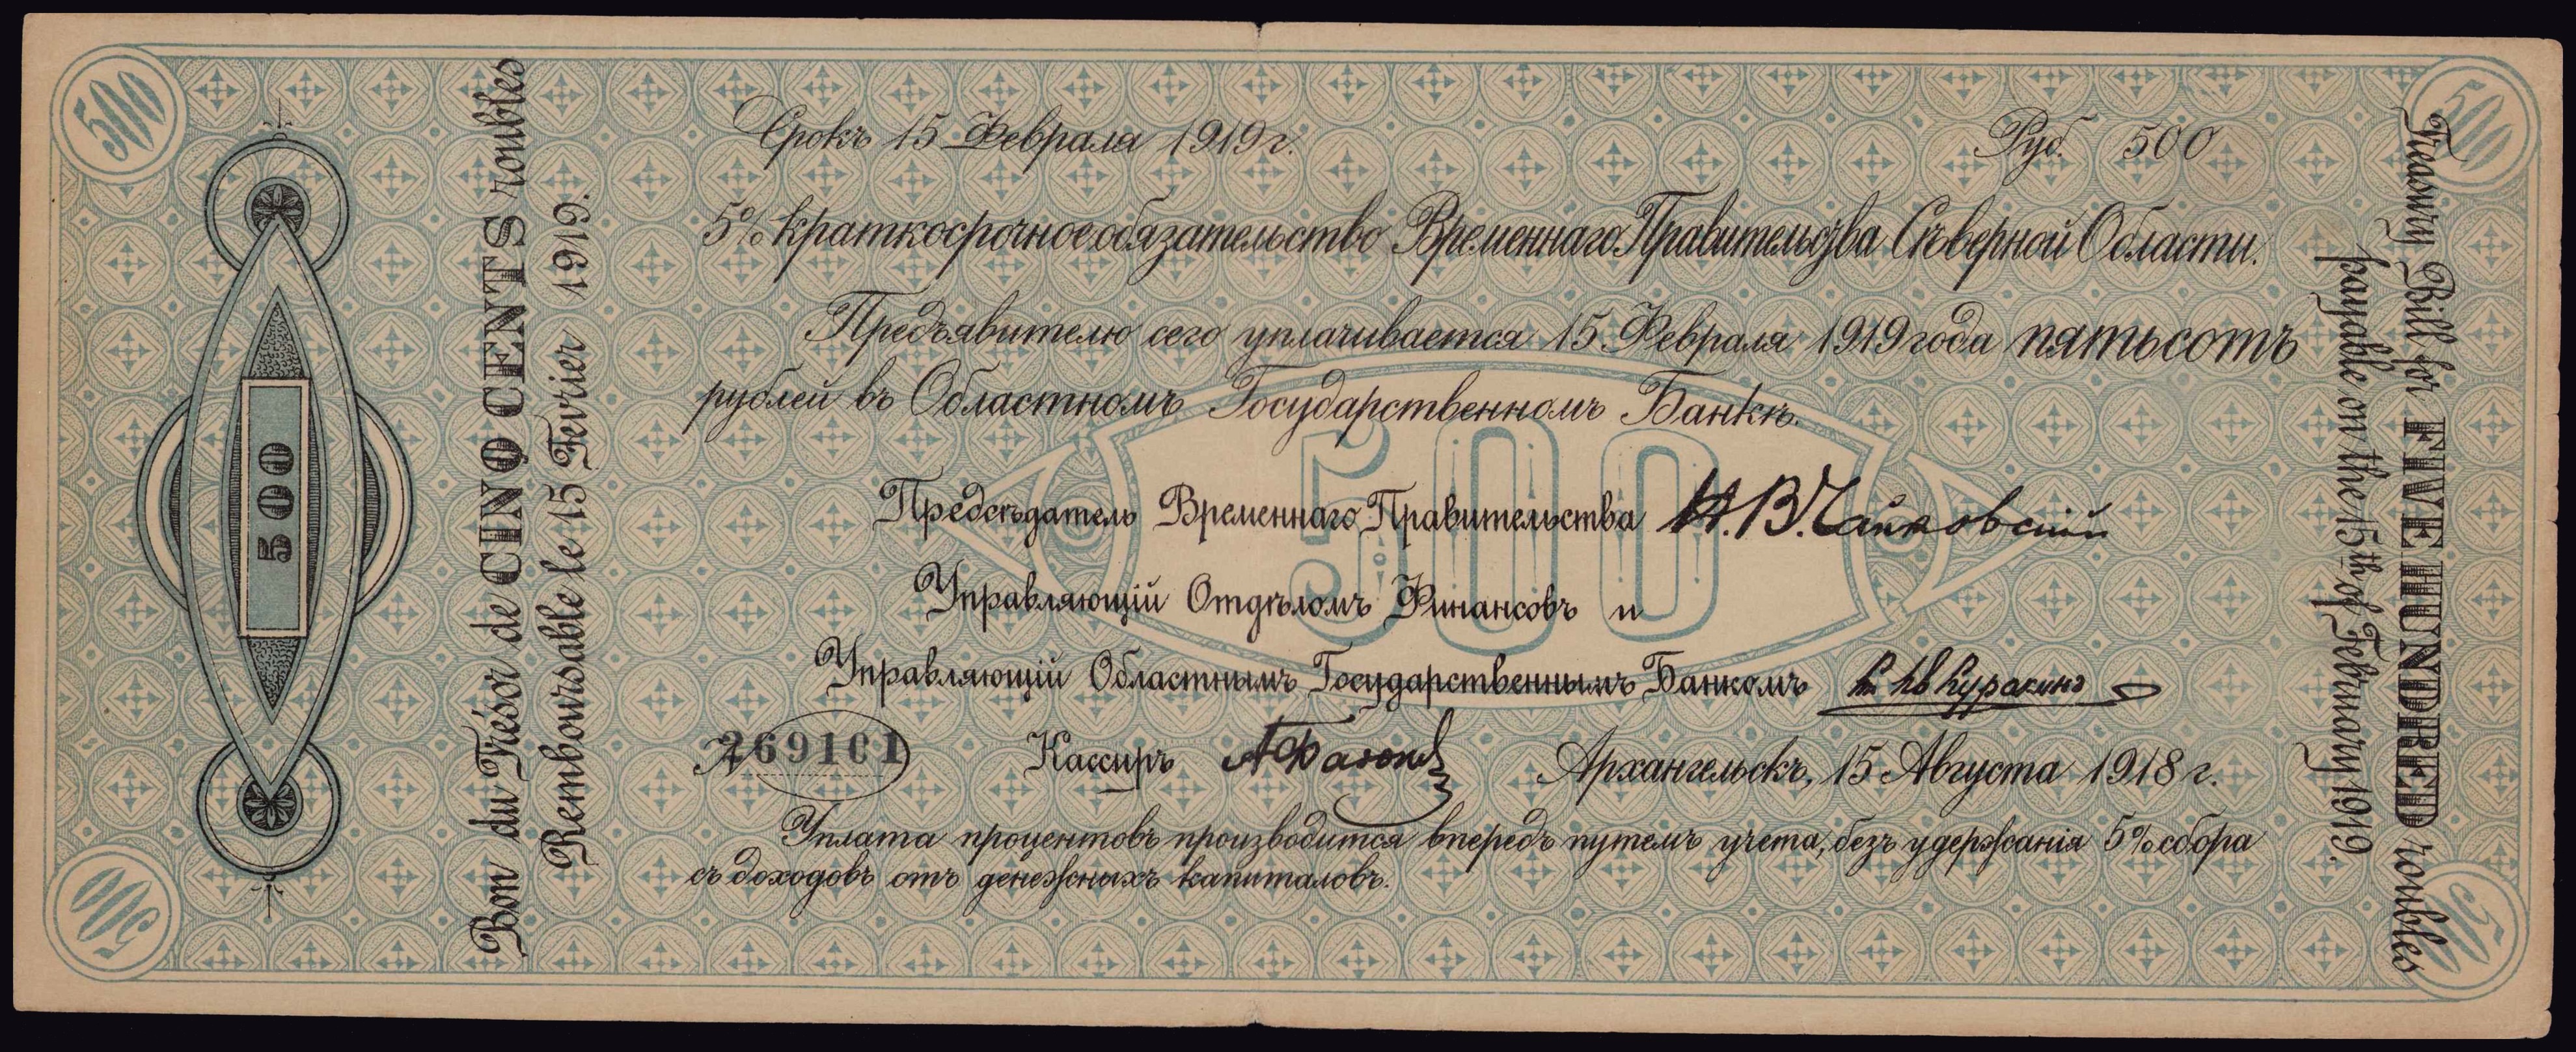 500
500
Срокъ 15 Февраля 1919 г.
Руб. 500
5% краткосрочное обязательство Временнаго Правительства Сѣверной Области.
Предъявителю сего уплачивается 15 Февраля 1919 года пятьсотъ
рублей въ Областномъ Государственномъ Банкѣ.
500
Предсѣдатель Временнаго Правительства Н.В. Чайковскій
Управляющій Отдѣломъ Финансовъ и
Управляющій Областнымъ Государственнымъ Банкомъ Кн. Ив Куракинъ
269101
Кассиръ
Архангельскъ, 15 Августа 1918 г.
Уплата процентовъ производится впередъ путемъ учета, безъ удержанія 5% сбора
съ доходовъ отъ денежныхъ капиталовъ.
500
Bon du Trésor de CINQ CENTS roubles
Remboursable le 15 Fevrier 1919.
Treasury Bill for FIVE HUNDRED roubles
payable on the 15th of February 1919.
500
500